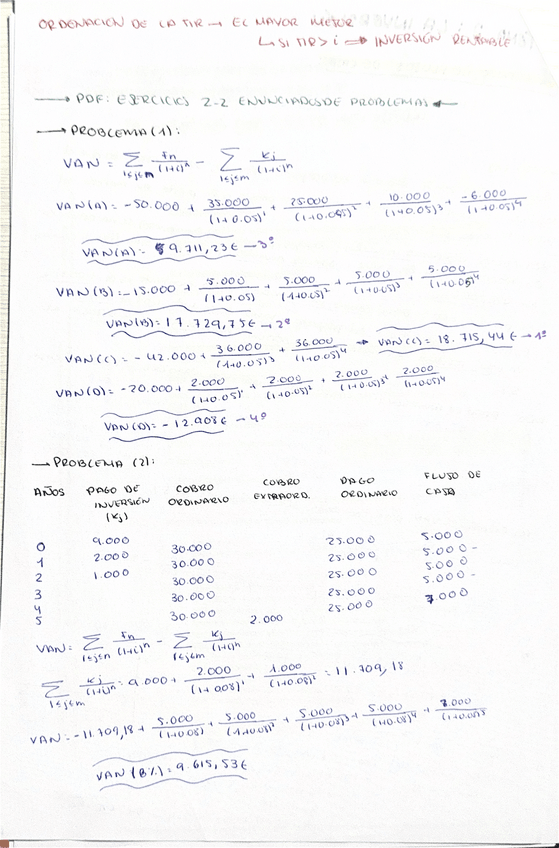 ORDENACIÓN DE LA TIR → EL MAYOR MEJOR
↳ SI TIR > i ⇒ INVERSIÓN RENTABLE
→ PDF: EJERCICIOS 2-2 ENUNCIADOS DE PROBLEMAS ←
→ PROBLEMA (1):
VAN = Σ 1≤j≤m Fn/(1+i)^n − Σ 1≤j≤m Kj/(1+i)^n
VAN(A) = -50.000 + 35.000/(1+0.05)^1 + 25.000/(1+0.05)^2 + 10.000/(1+0.05)^3 + -6.000/(1+0.05)^4
VAN(A) = 9.711,23€ → 3º
VAN(B) = -15.000 + 5.000/(1+0.05) + 5.000/(1+0.05)^2 + 5.000/(1+0.05)^3 + 5.000/(1+0.05)^4
VAN(B) = 17.729,75€ → 2º
VAN(C) = -42.000 + 36.000/(1+0.05)^3 + 36.000/(1+0.05)^4 → VAN(C) = 18.715,44€ → 1º
VAN(D) = -20.000 + 2.000/(1+0.05)^1 + 2.000/(1+0.05)^2 + 2.000/(1+0.05)^3 + 2.000/(1+0.05)^4
VAN(D) = -12.908€ → 4º
→ PROBLEMA (2):
AÑOS PAGO DE INVERSIÓN (Kj) COBRO ORDINARIO COBRO EXTRAORD. PAGO ORDINARIO FLUJO DE CAJA
0 9.000
1 2.000 30.000 25.000 5.000
2 1.000 30.000 25.000 5.000 -
3 30.000 25.000 5.000
4 30.000 25.000 5.000 -
5 30.000 2.000 25.000 7.000
VAN = Σ 1≤j≤n Fn/(1+i)^n − Σ 1≤j≤m Kj/(1+i)^n
Σ 1≤j≤m Kj/(1+i)^n = 9.000 + 2.000/(1+0.08)^1 + 1.000/(1+0.08)^2 = 11.709,18
VAN = -11.709,18 + 5.000/(1+0.08) + 5.000/(1+0.08)^2 + 5.000/(1+0.08)^3 + 5.000/(1+0.08)^4 + 7.000/(1+0.08)^5
VAN (8%) = 9.615,53€